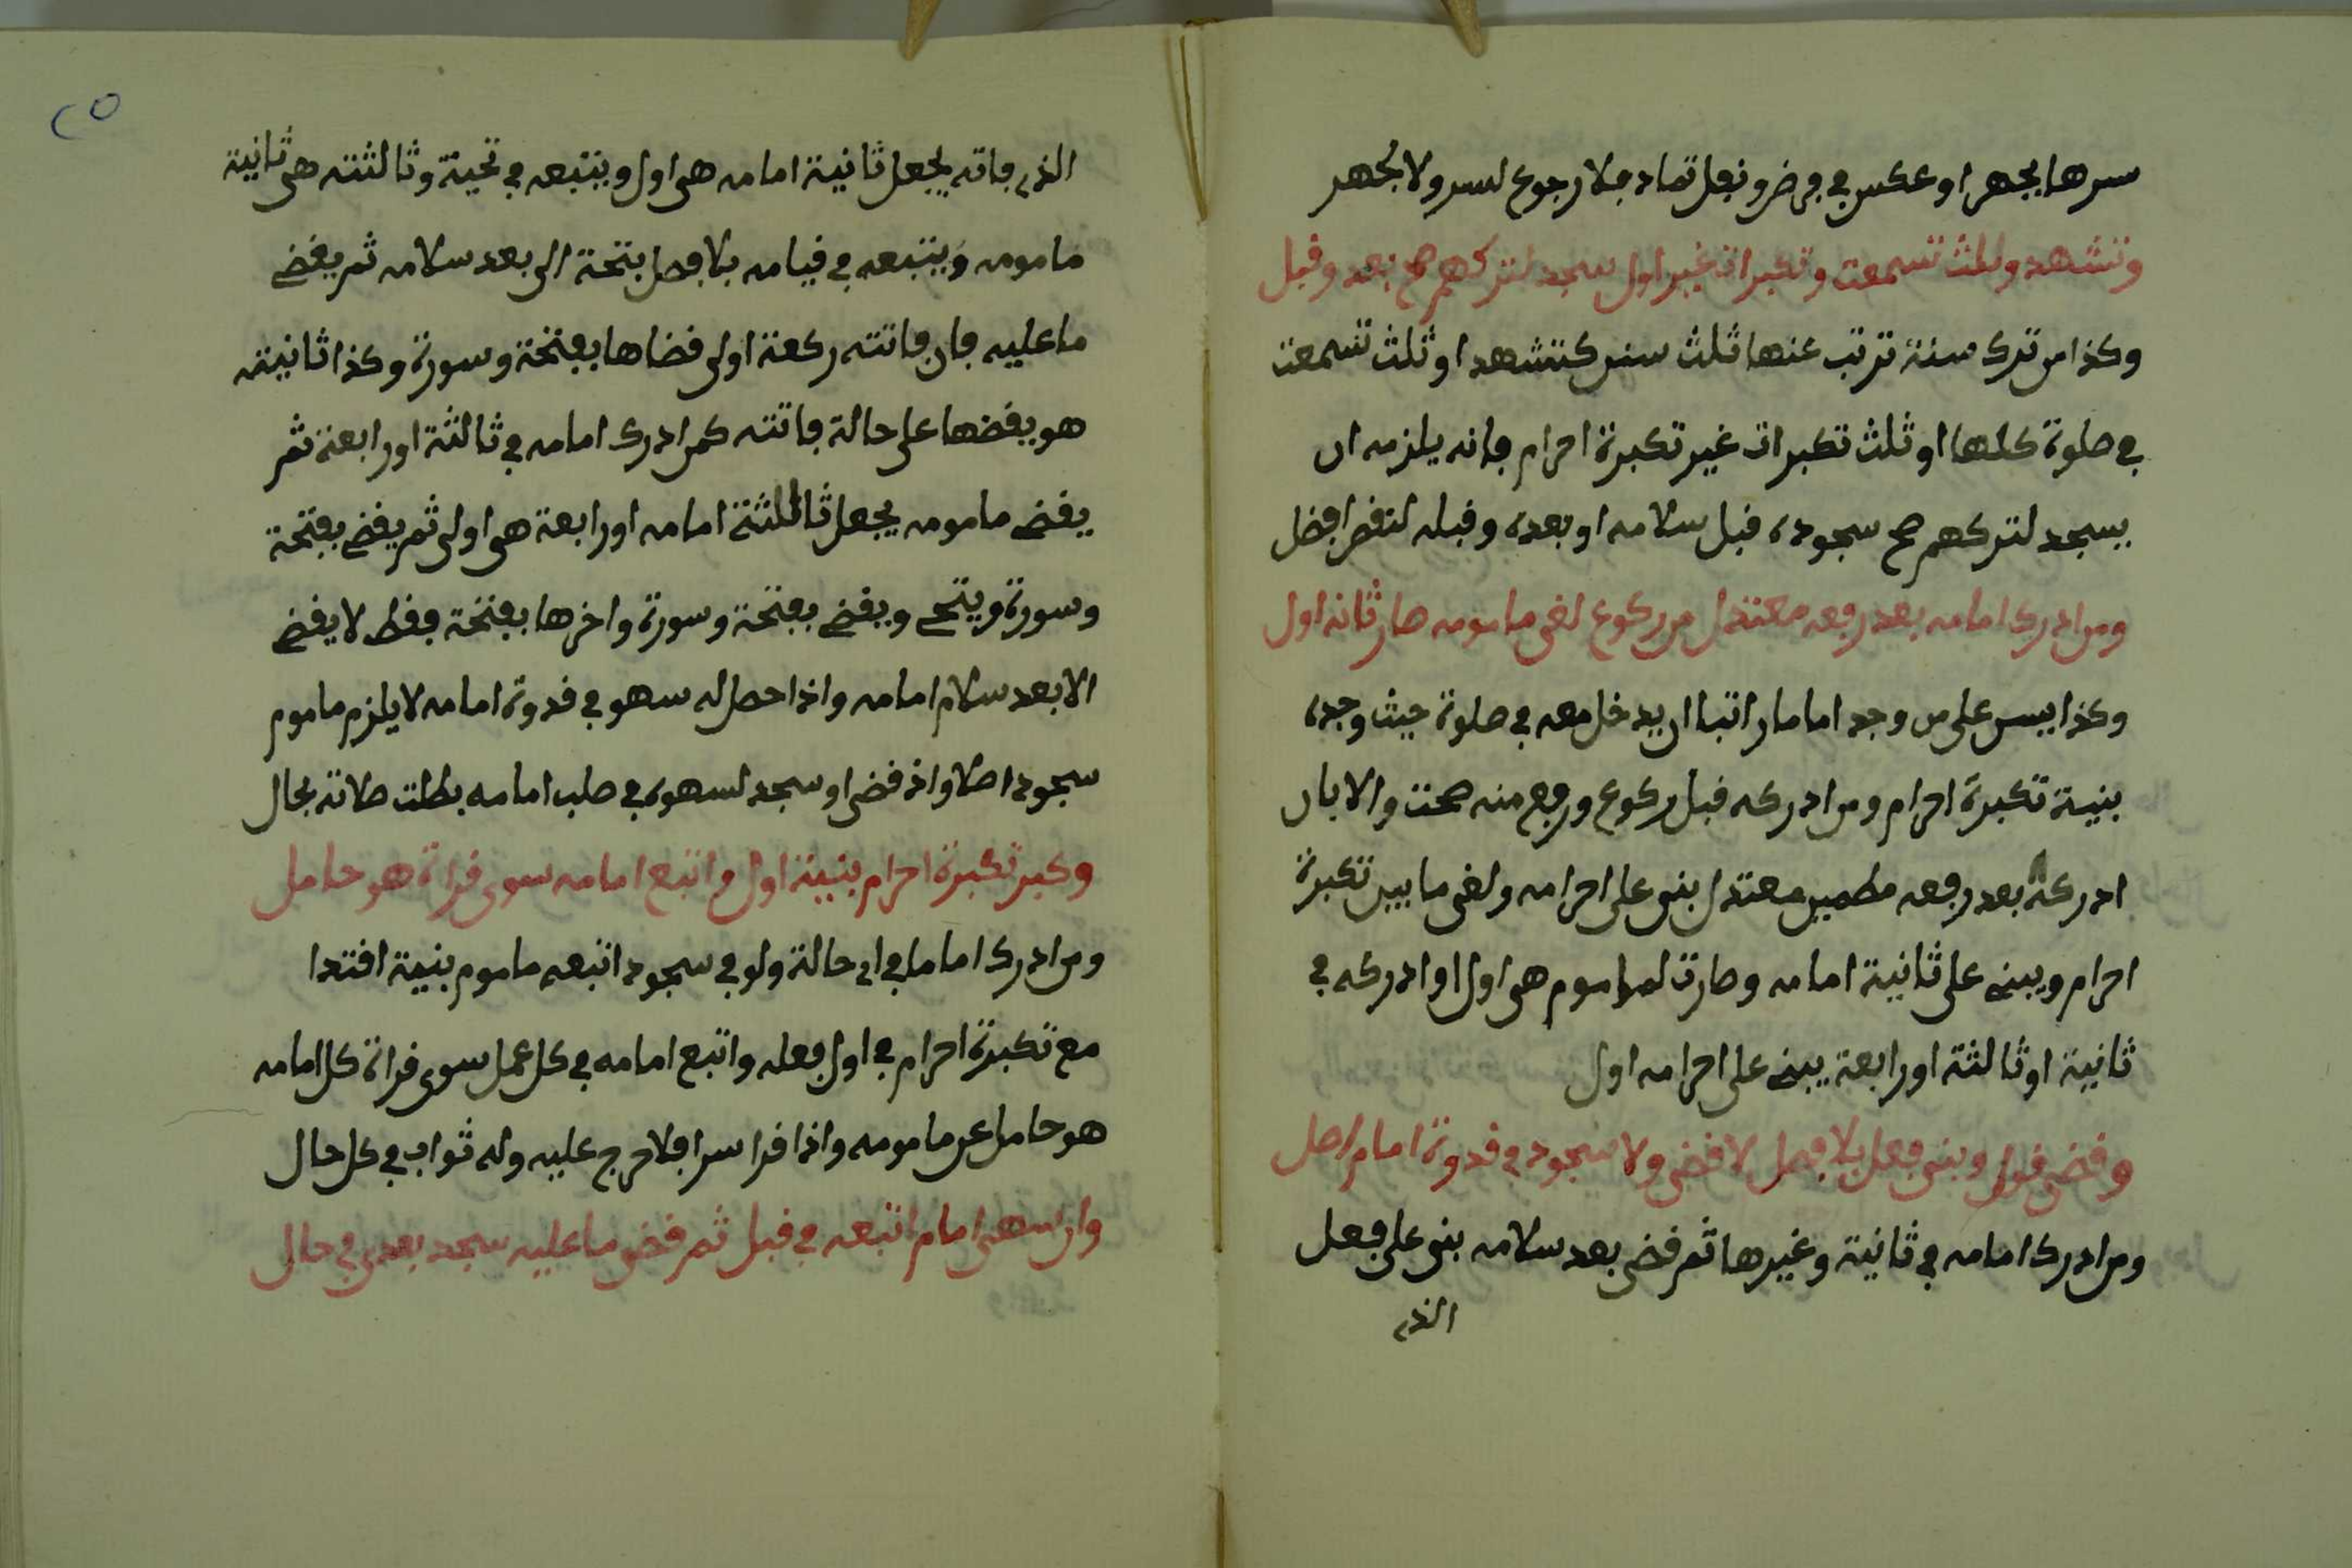 سرها بجهر او عكس في فرض ونفل تماد فلا رجوع لسر ولا لجهر
وتشهد وثلث تسمعت وتكبرات غير اول سجد لتركهم صح بعد وقبل
وكذا من ترك سنة ترتب عنها ثلث سنن كتشهد او ثلث تسمعت
في صلوة كلها او ثلث تكبرات غير تكبرة احرام فانه يلزمه ان
يسجد لتركهم صح سجوده قبل سلامه او بعده وقبله لنقص افضل
ومن ادرك امامه بعد رفعه معتدل من ركوع لغى مامومه صار ثانه اول
وكذا يسن على من وجد اماما راتبا ان يدخل معه في صلوة حيث وجده
بنية تكبرة احرام ومن ادركه قبل ركوع ورفع منه صحت والا بان
ادركه بعد رفعه مطمين معتدل بنى على احرامه ولغى ما بين تكبرة
احرام ويبني على ثانية امامه وصارت لماموم هى اول او ادركه في
ثانية او ثالثة او رابعة يبني على احرامه اول
وقضى قول وبنى فعل بلا فصل لا قضى ولا سجود في قدوة امام اصل
ومن ادرك امامه في ثانية وغيرها ثم قضى بعد سلامه بنى على فعل
الذي
٢٥
الذي فاته يجعل ثانية امامه هى اول ويتبعه في تحية وثالثته هى ثانية
مامومه ويتبعه في قيامه بلا فصل بتحة الى بعد سلامه ثم يقضي
ما عليه فان فاتته ركعة اولى قضاها بفتحة وسورة وكذا ثانيته
هو يقضها على حالة فاتته كمن ادرك امامه في ثالثة او رابعة ثم
يقضي مامومه يجعل ثاللثة امامه او رابعة هى اولى ثم يقضي بفتحة
وسورة ويتحي ويقضي بفتحة وسورة واخرها بفتحة فقط لا يقضي
الا بعد سلام امامه واذا حصل له سهو في قدوة امامه لا يلزم ماموم
سجود اصلا واذ قضى او سجد لسهوه في صلب امامه بطلت صلاته بحال
وكبر تكبرة احرام بنية اول واتبع امامه سوى قراة هو حامل
ومن ادرك اماما في اي حالة ولو في سجود اتبعه ماموم بنية اقتدا
مع تكبرة احرام في اول فعله واتبع امامه في كل عمل سوى قراة كل امامه
هو حامل عن مامومه واذا قرا سرا فلا حرج عليه وله ثواب في كل حال
وان سهى امام اتبعه في قبل ثم قضى ما عليه سجد بعدي في حال